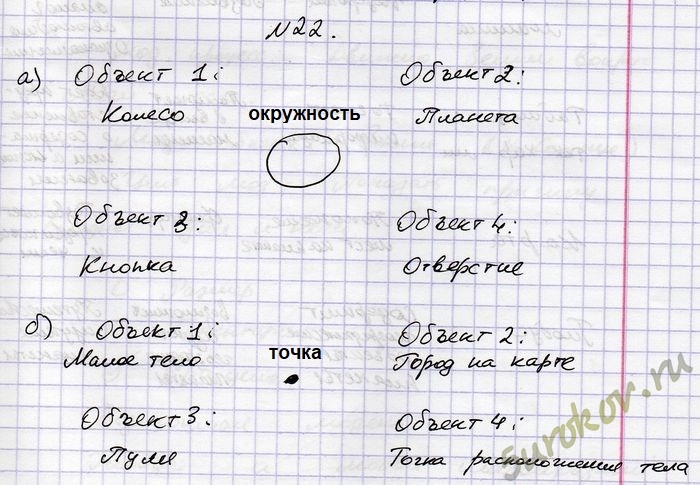 №22.
а) Объект 1: Объект 2:
Колесо окружность Планета
Объект 3: Объект 4:
Кнопка Отверстие
б) Объект 1: Объект 2:
Малое тело точка Город на карте
Объект 3: Объект 4:
Пуля Точка расположения тела
5urokov.ru